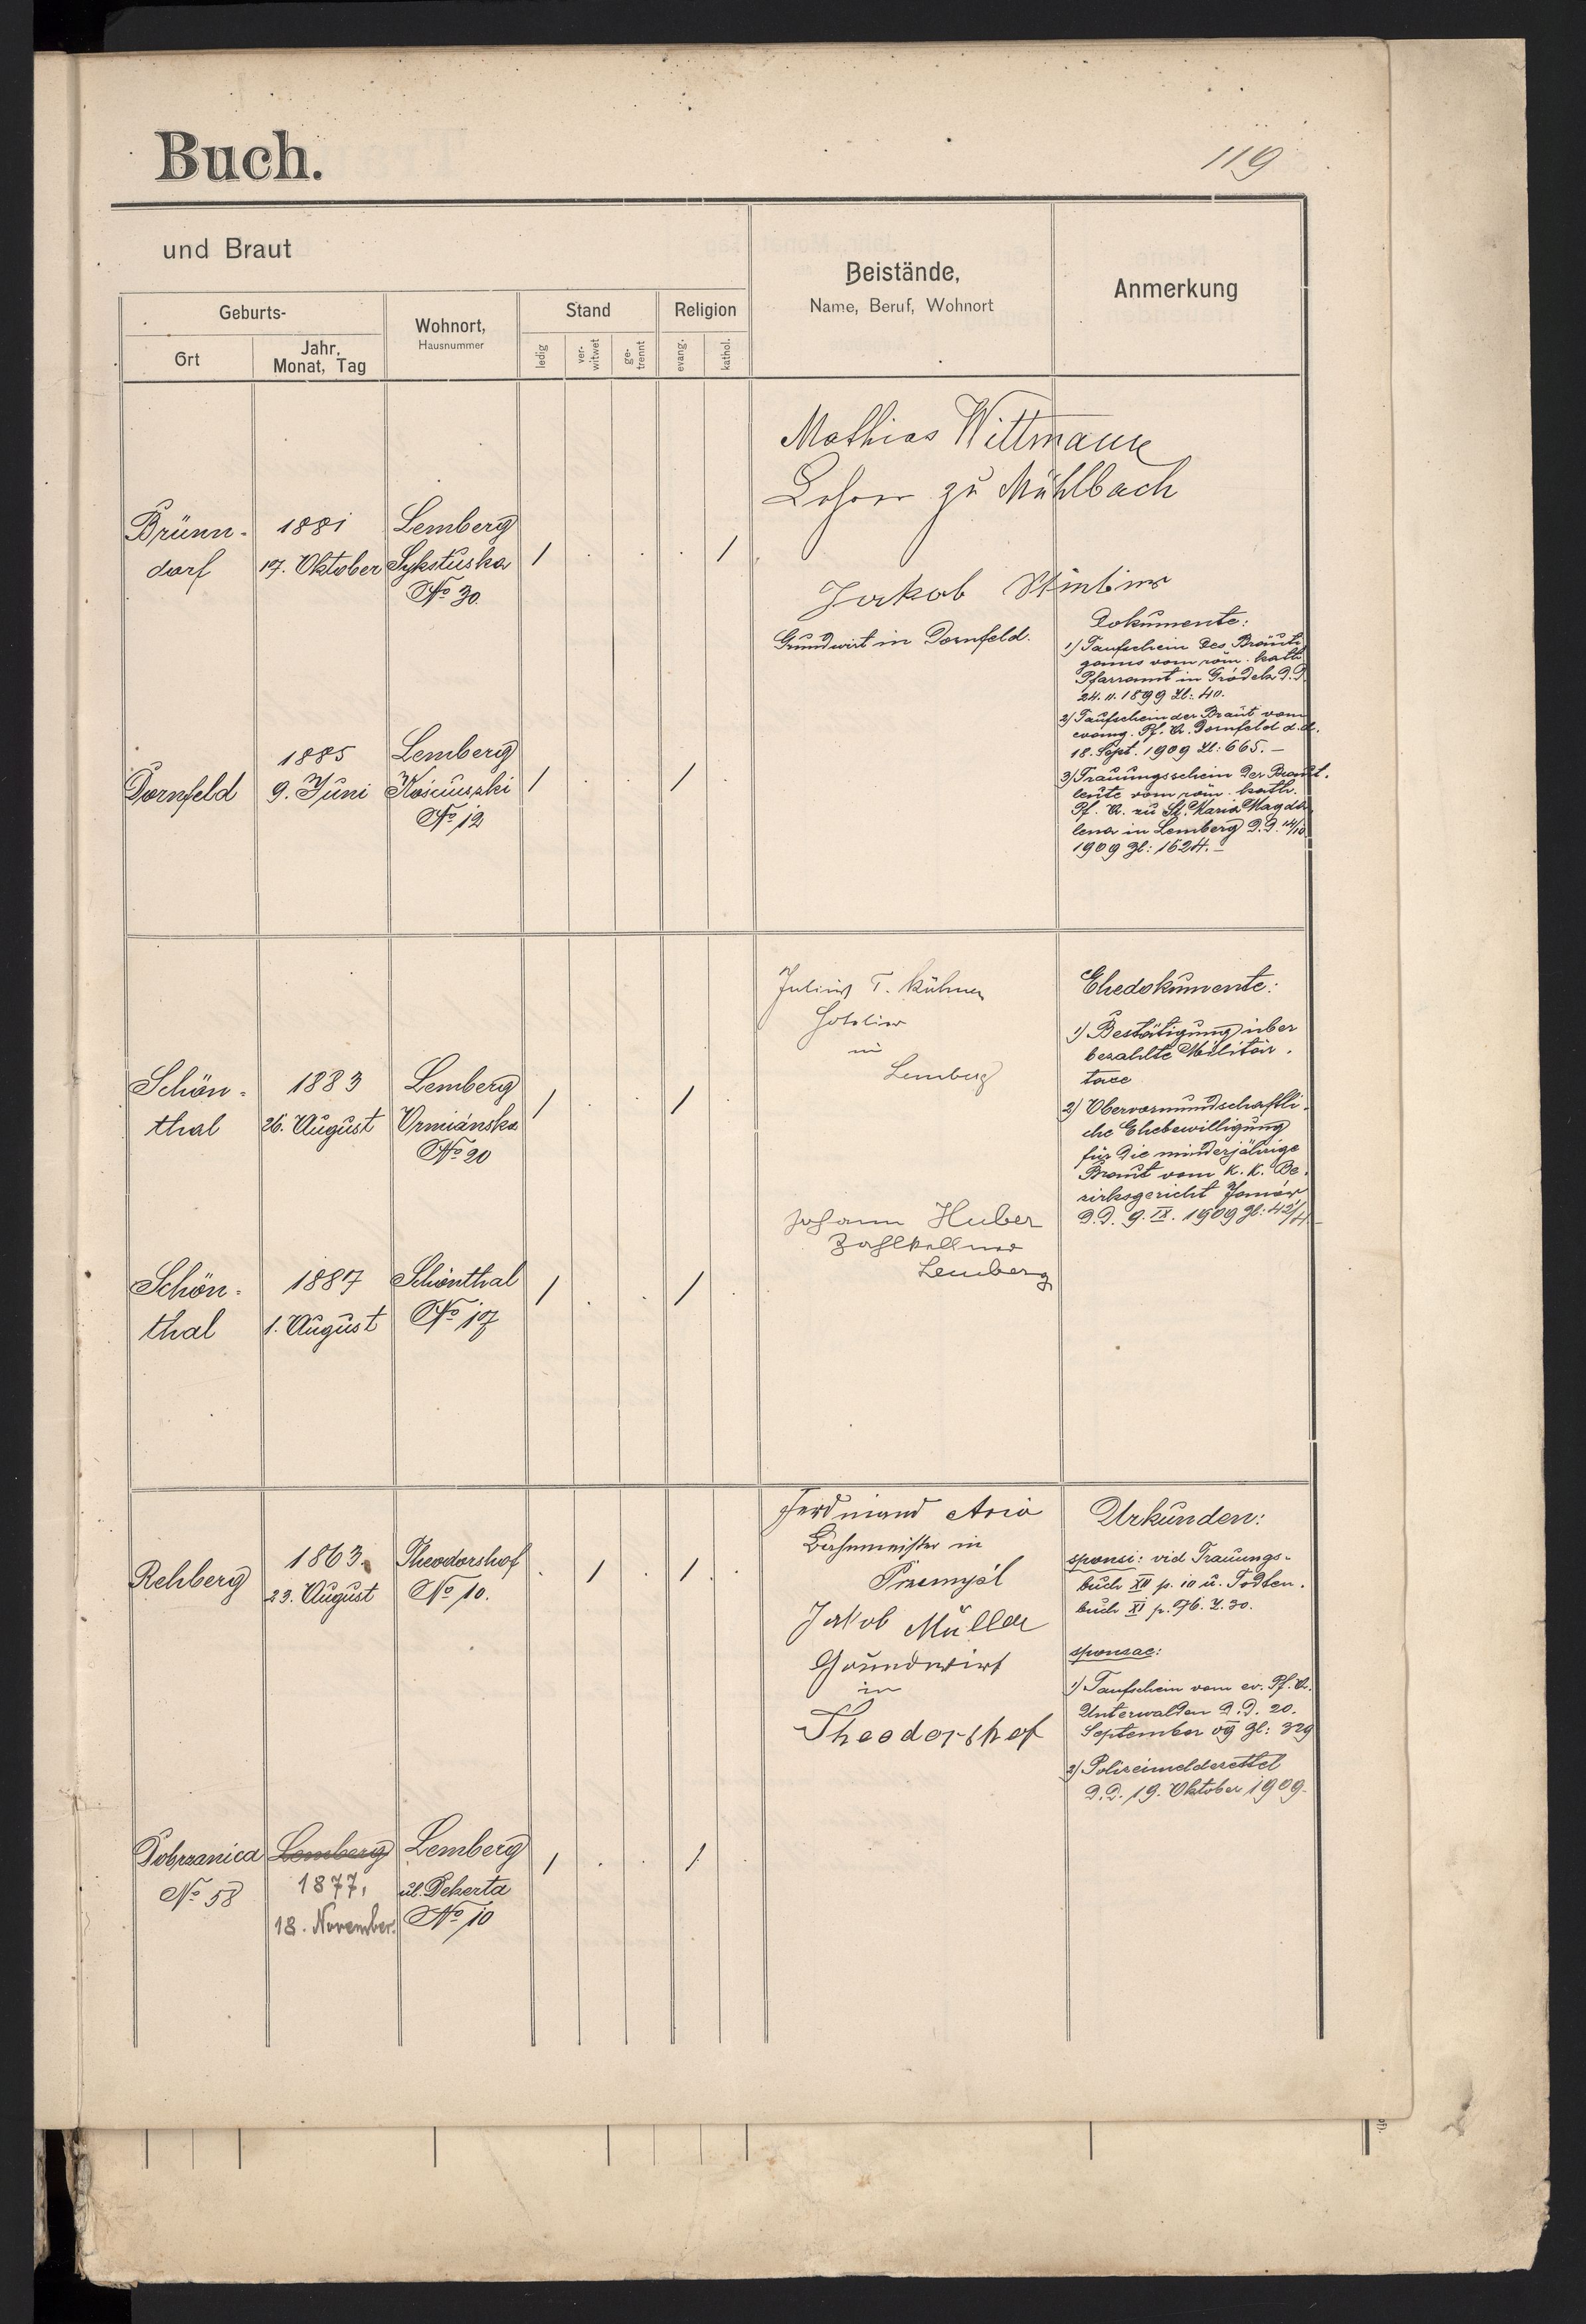 Buch.
119
und Braut
Beistände,
Name, Beruf, Wohnort
Anmerkung
Geburts-
Wohnort,
Hausnummer
Stand
Religion
Ort
Jahr,
Monat, Tag
ledig
ver-
witwet
ge-
trennt
evang.
kathol.
Brünn-
dorf
1881
17. Oktober
Lemberg
Sykstuska
No 30
1 . . . 1
Mathias Wittmann
zu Mühlbach
Jakob
Grundwirt in Dornfeld.
Dornfeld
1885
9. Juni
Lemberg
Kościuszki
No 12
1 . . 1 .
Dokumente:
1) Taufschein des Bräuti
gams vom röm. kath
Pfarramt in Gródek d.d.
24. 11. 1899 Zl: 40.
2) Taufschein der Braut vom
evang. Pf. A. Dornfeld d.d.
18. Sept. 1909 Zl: 665. –
3) Trauungsschein der Braut-
leute vom röm. kath.
Pf. A. zu St. Maria Magda
lena in Lemberg d.d. 14/10
1909 Zl: 1624. –
Schön-
thal
1883
26. August
Lemberg
Ormiánska
No 20
1 . . 1 .
Julius T. Kühner
Hotelier
in
Lemberg
Schön-
thal
1887
1. August
Schönthal
No 17
1 . . 1 .
Johann Huber
Zahlkellner
Lemberg
Ehedokumente:
1) Bestätigung über
bezahlte Militär-
taxe
2) Obervormundschaftli-
che Ehebewilligung
für die minderjährige
Braut vom K. K. Be-
zirksgericht Janów
d.d. 9. IX. 1909 Zl: 42/4 –
Rehberg
1863.
23. August
Theodorshof
No 10.
. 1 . 1 .
Ferdinand
Bahnmeister in
Przemyśl
Jakob Müller
Grundwirt
in
Theodorshof
Dobrzanica
No 58
Lemberg
1877,
18. November.
Lemberg
ul. Dekerta
No 10
1 . . 1 .
Urkunden:
sponsi: vid Trauungs-
buch XII p. 10 u. Todten-
buch XI p. 76. Z. 30.
sponsae:
1) Taufschein vom ev. Pf. A.
Unterwalden d.d. 20.
September 09 Zl: 329
2) Polizeimeldezettel
d.d. 19. Oktober 1909.